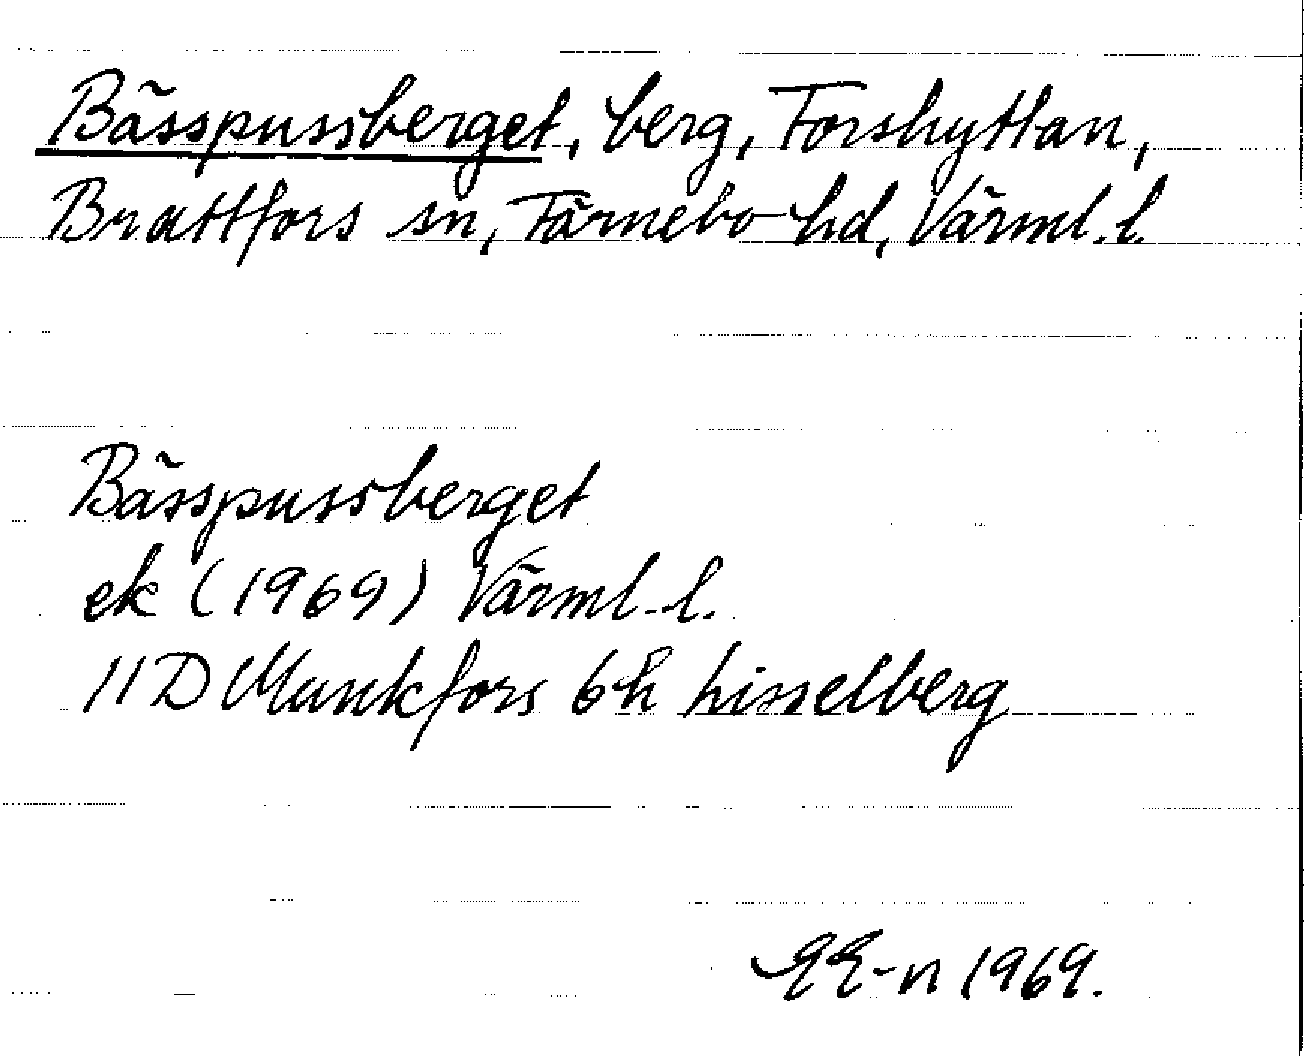 Bässpussberget, berg, Forshyttan,
Brattfors sn, Färnebo hd, Värml. l.
Bässpussberget
ek (1969) Värml. l.
11D Munkfors 6h Lisselberg
1969.